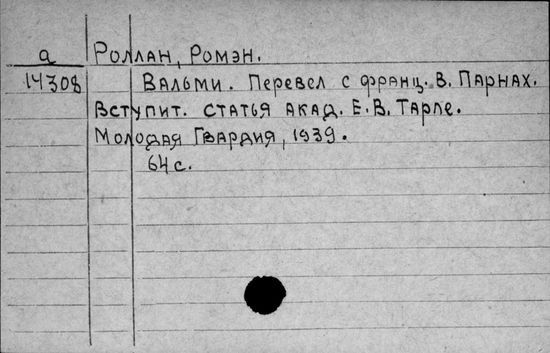 а Роллан, Ромэн.
14308 Вальми. Перевел с франц. В. Парнах.
Вступит. статья акад. Е.В. Тарле.
Молодая Гвардия, 1939.
64 с.